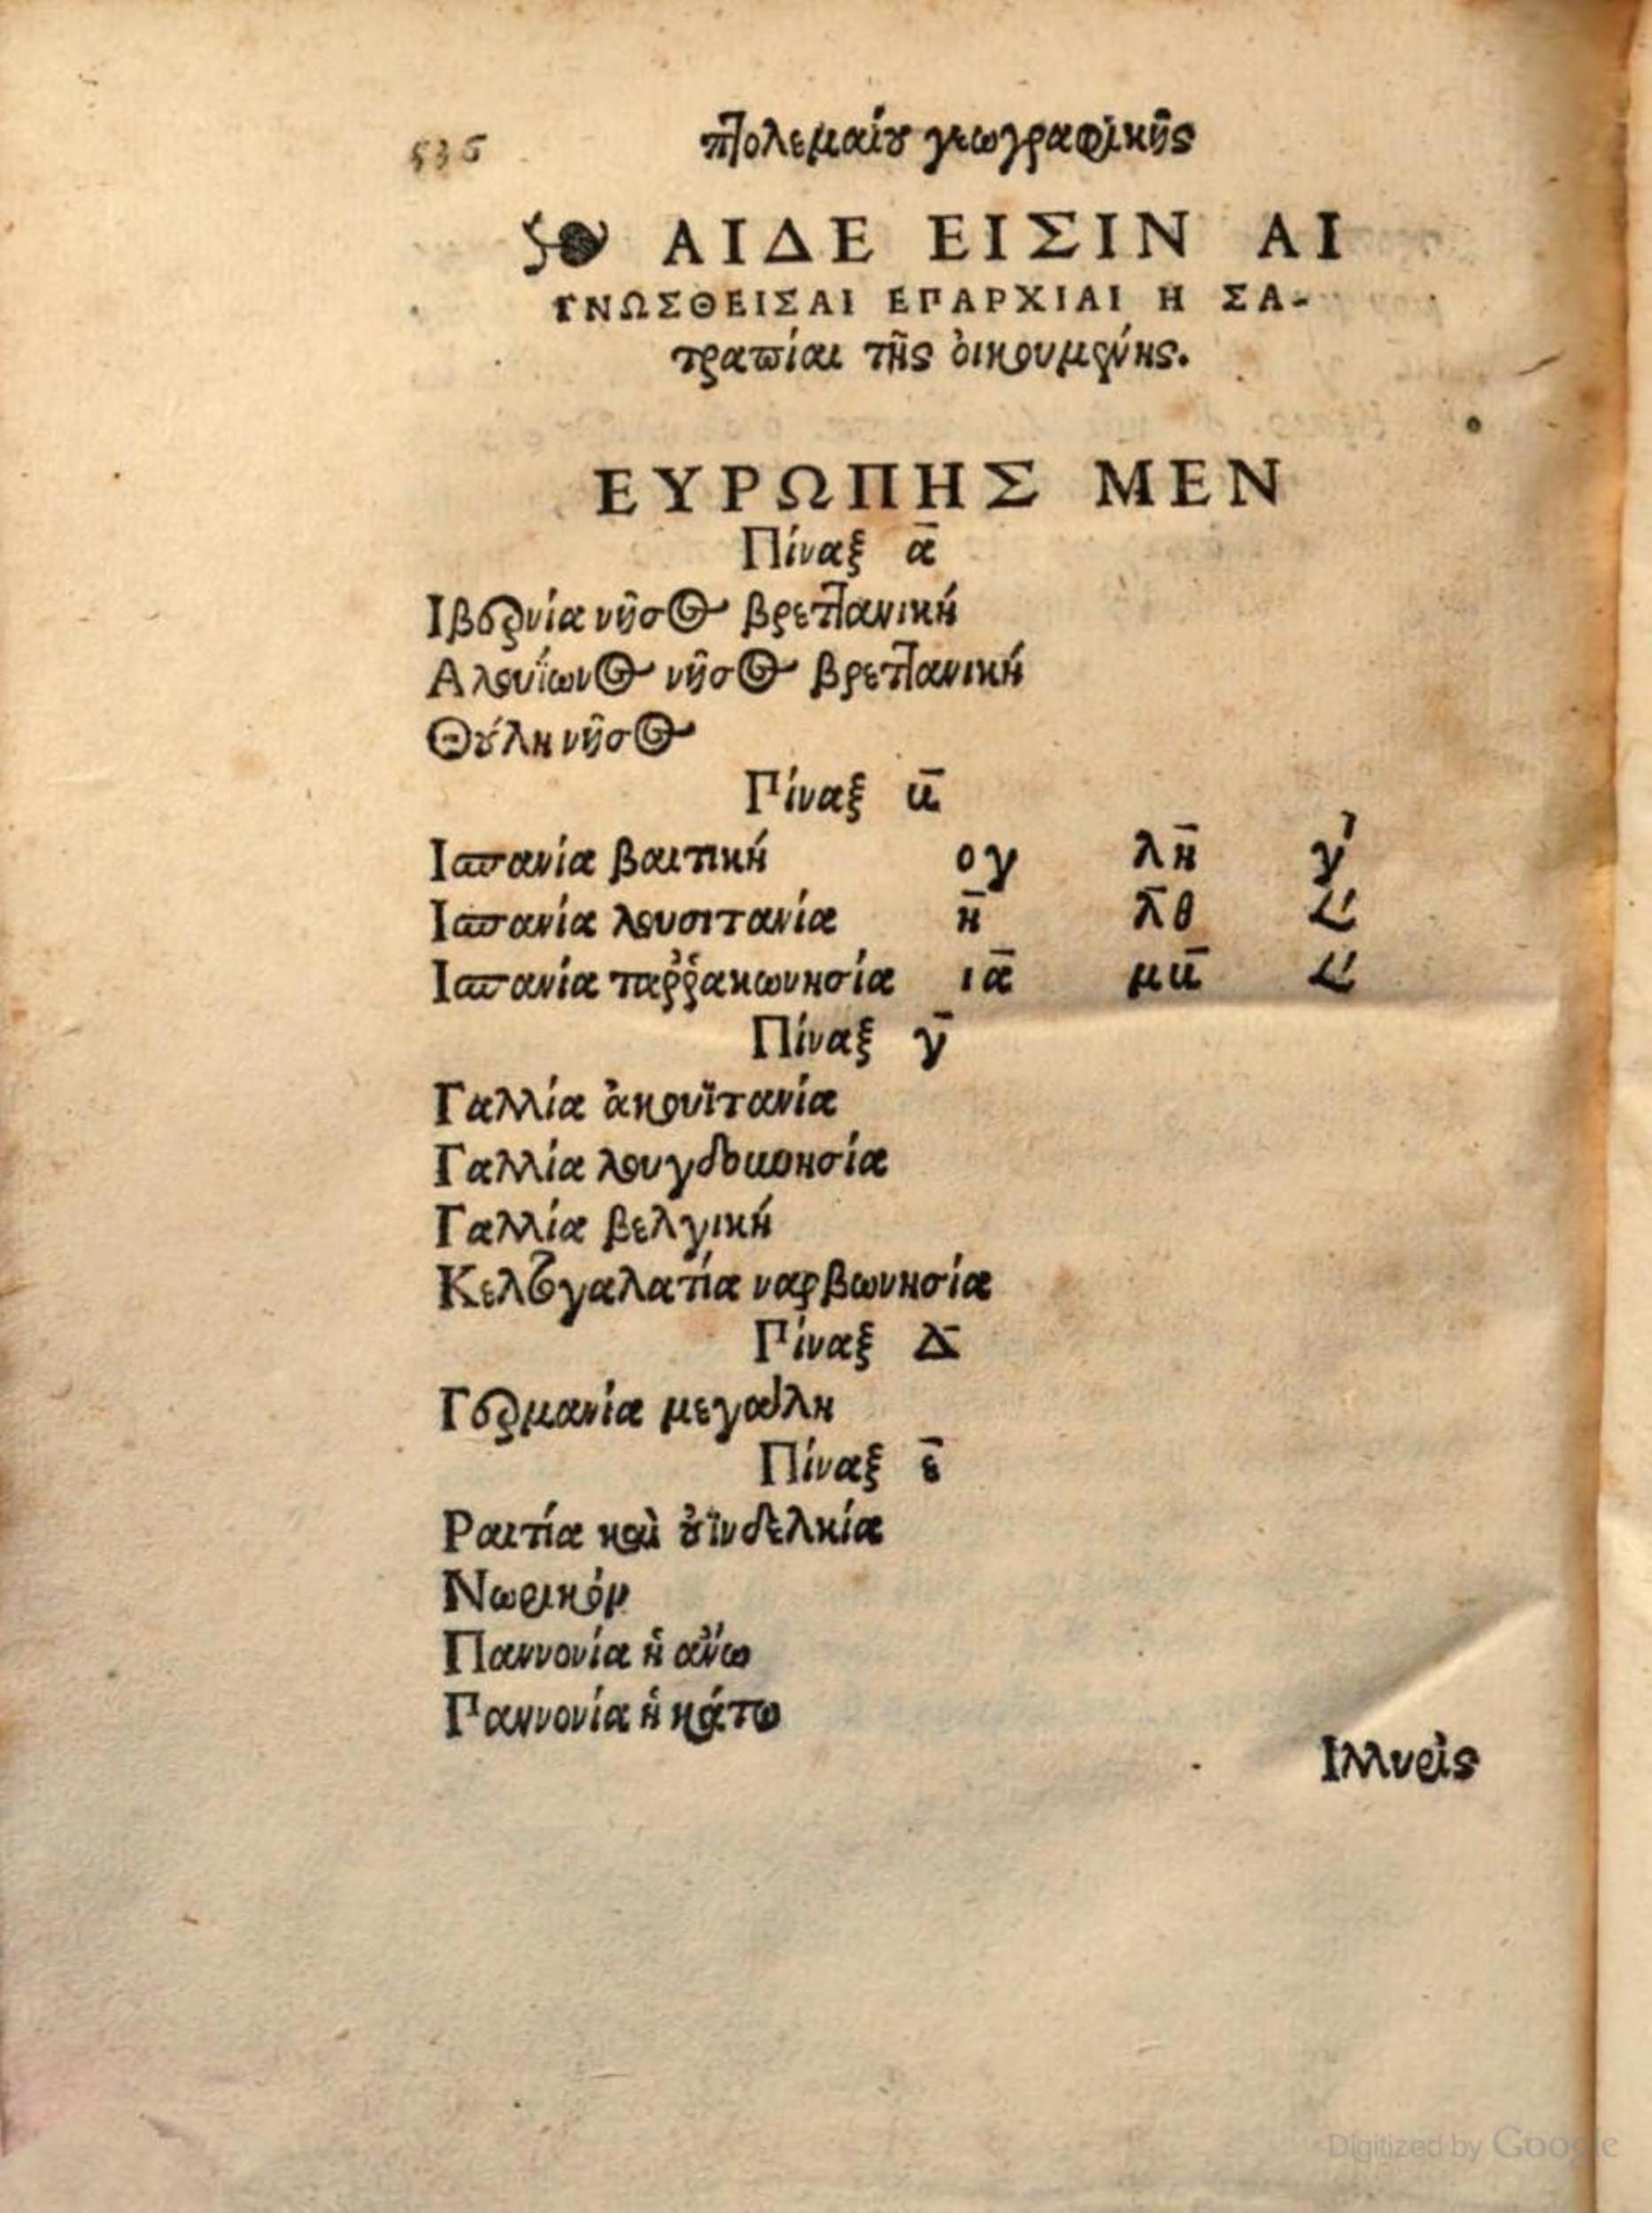 536 πτολεμαίου γεωγραφικῆς
ΑΙΔΕ ΕΙΣΙΝ ΑΙ
ΓΝΩΣΘΕΙΣΑΙ ΕΠΑΡΧΙΑΙ Η ΣΑ-
τραπίαι τῆς ὀικουμένης.
ΕΥΡΩΠΗΣ ΜΕΝ
Πίναξ α̅
Ιβερνία νῆσος βρεττανική
Αλουΐωνος νῆσος βρεττανική
Θούλη νῆσος
Πίναξ β̅
Ισπανία βαιτική ογ λη̅ γ'
Ισπανία λουσιτανία η̅ λ̅θ ∠'
Ισπανία ταῤῥακωνησία ια̅ μβ̅ ∠'
Πίναξ γ̅
Γαλλία ἀκουϊτανία
Γαλλία λουγδουονησία
Γαλλία βελγική
Κελτογαλατία ναρβωνησία
Πίναξ Δ̅
Γερμανία μεγάλη
Πίναξ ε̅
Ραιτία καὶ ὀυϊνδελκία
Νωρικόν
Παννονία ἡ ἄνω
Παννονία ἡ κάτω
Ιλλυρὶς
Digitized by Google